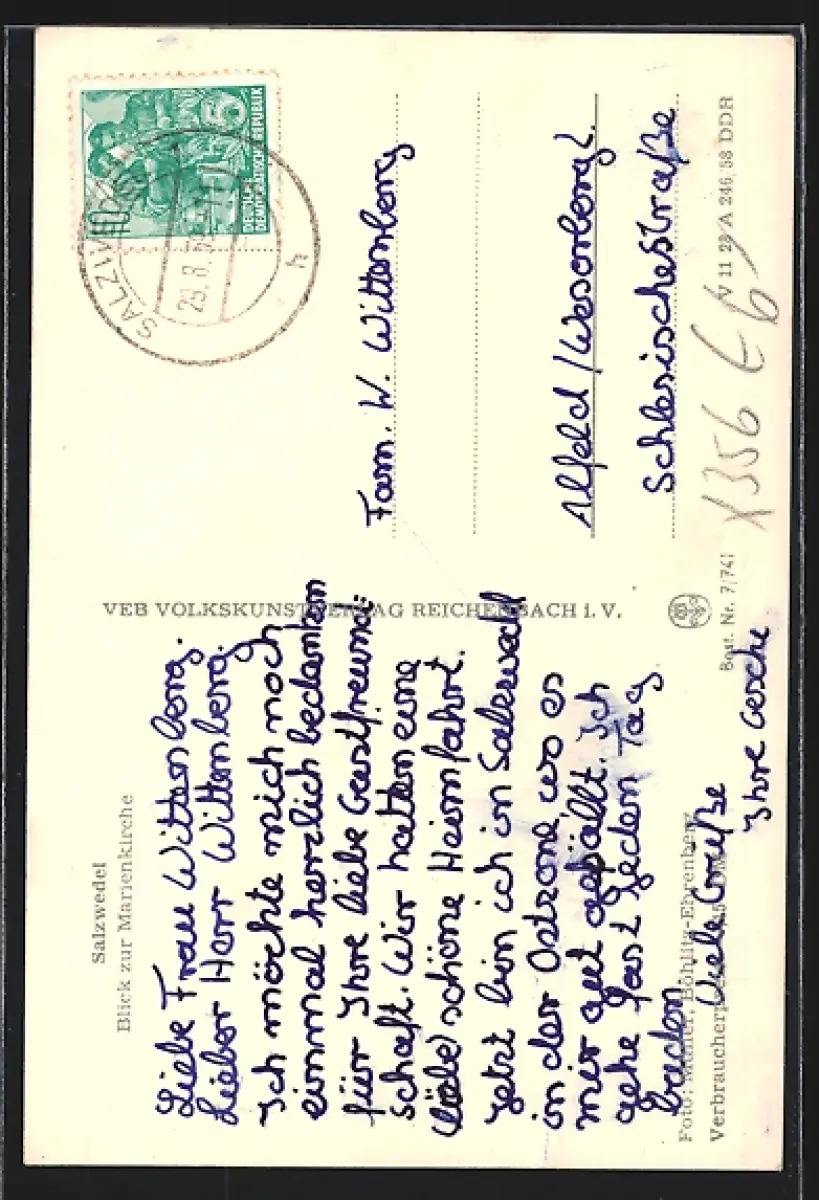 Salzwedel
Blick zur Marienkirche
Liebe Frau Wittenberg.
Lieber Herr Wittenberg.
Ich möchte mich noch
einmal herzlich bedanken
für Ihre liebe Gastfreund-
schaft. Wir hatten eine
schöne Heimfahrt.
Jetzt bin ich in Salzwedel
in der Ostzone wo es
mir gut gefällt. Ich
gehe fast jeden Tag
baden
Viele Grüße
Ihre Gesche
Foto: Müller, Böhlitz-Ehrenberg
VEB VOLKSKUNSTVERLAG REICHENBACH i. V.
Best. Nr. 7/741
DEUTSCHE
DEMOKRATISCHE REPUBLIK
10
SALZWEDEL
29.8.
h
Fam. W. Wittenberg
Alfeld / Weserbergl.
Schlesischestraße
V 11 28 A 246/58 DDR